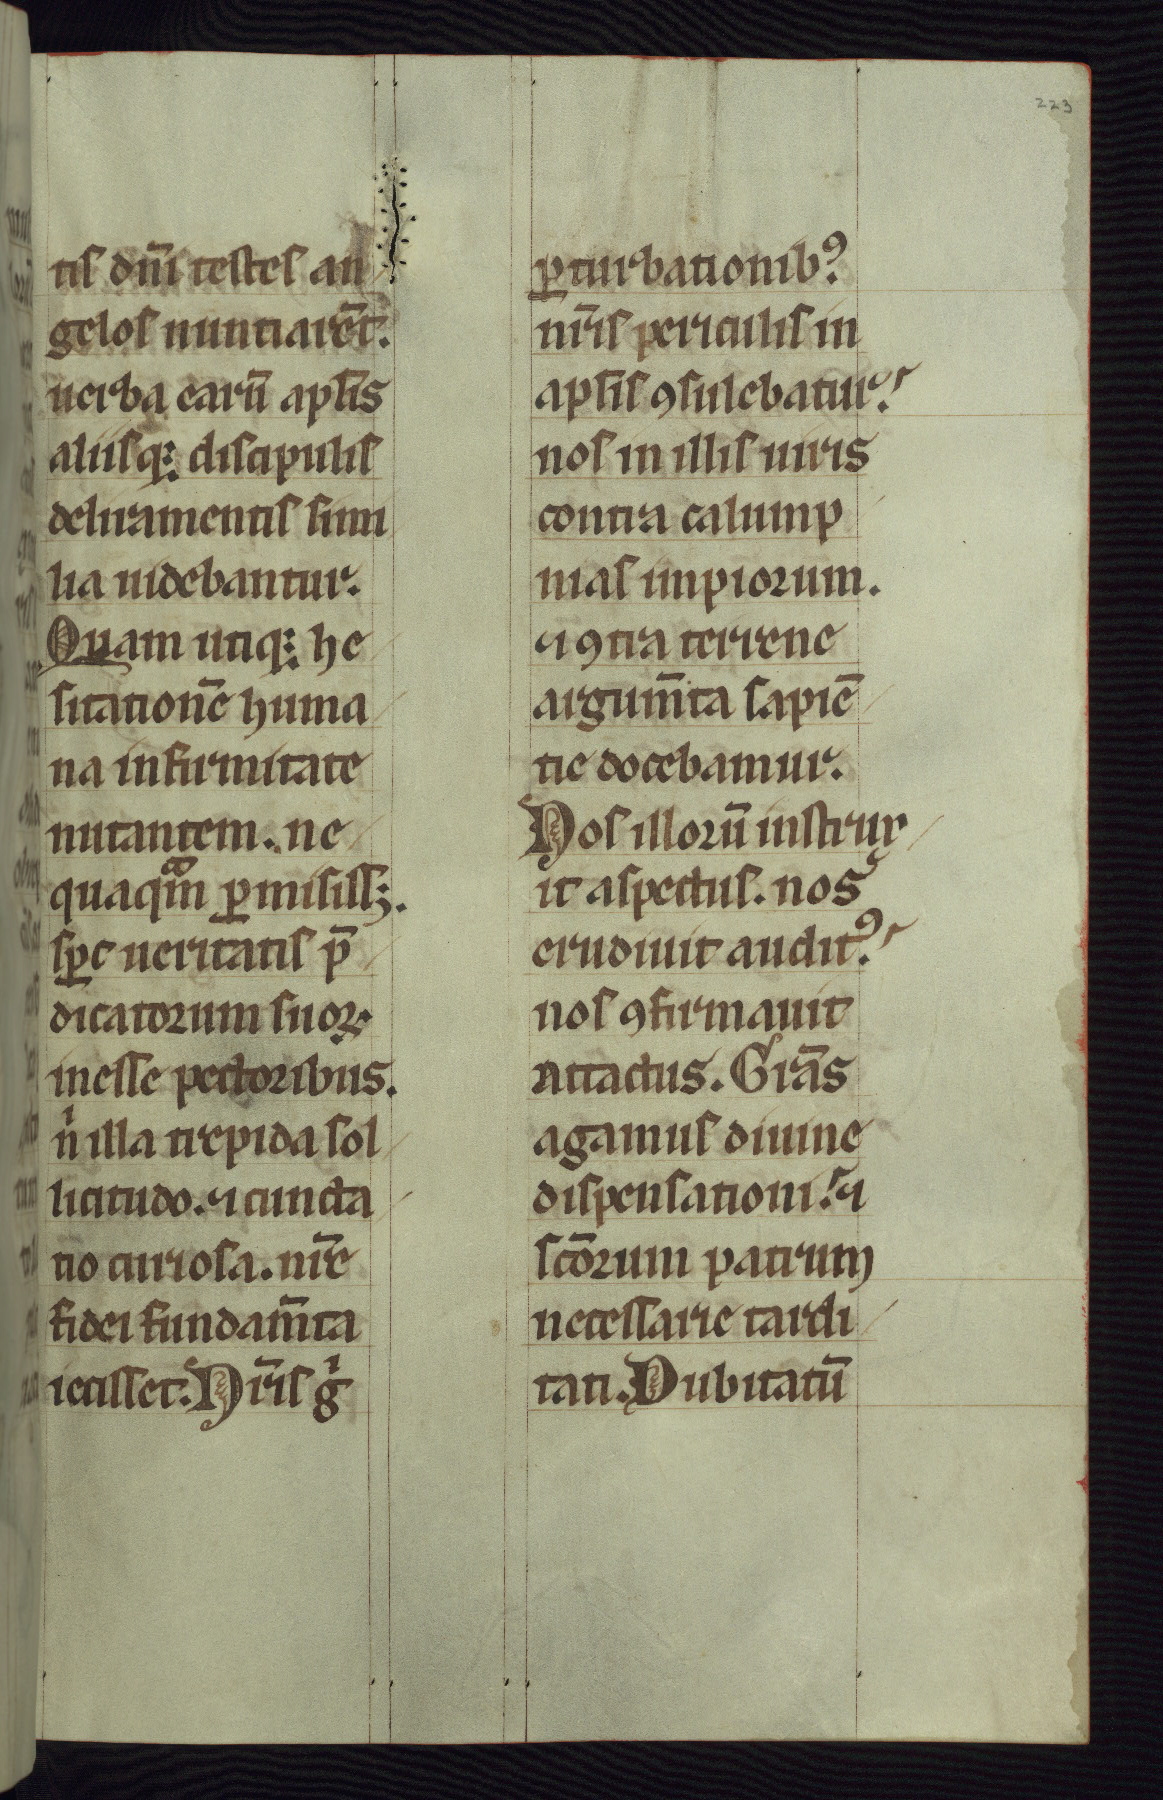 223
tis dn̄i testes an
gelos nuntiarēt.
uerba earū aplīs
aliisq; discipulis
deliramentis simi
lia uidebantur.
Quam utiq; he
sitationē huma
na infirmitate
nutantem. ne
quaqᷓm ꝑmisiss;.
sp̄c ueritatis p̄
dicatorum suoꝝ
inesse pectoribus.
nⁱ illa trepida sol
licitudo. ⁊ cuncta
tio curiosa. nr̄e
fidei fundam̄ta
iecisset. Nr̄is gⁱ
ꝑturbationibꝰ
nr̄is periculis in
aplīs ꝯsulebatur.
nos in illis uiris
contra calump
nias impiorum.
⁊ ꝯtra terrene
argum̄ta sapiē
tie docebamur.
Nos illorū instrux
it aspectus. nos
erudiuit auditꝰ.
nos ꝯfirmauit
attactus. Gr̄as
agamus diuine
dispensationi. ⁊
sc̄orum patrum
necessarie tardi
tati. Dubitatū